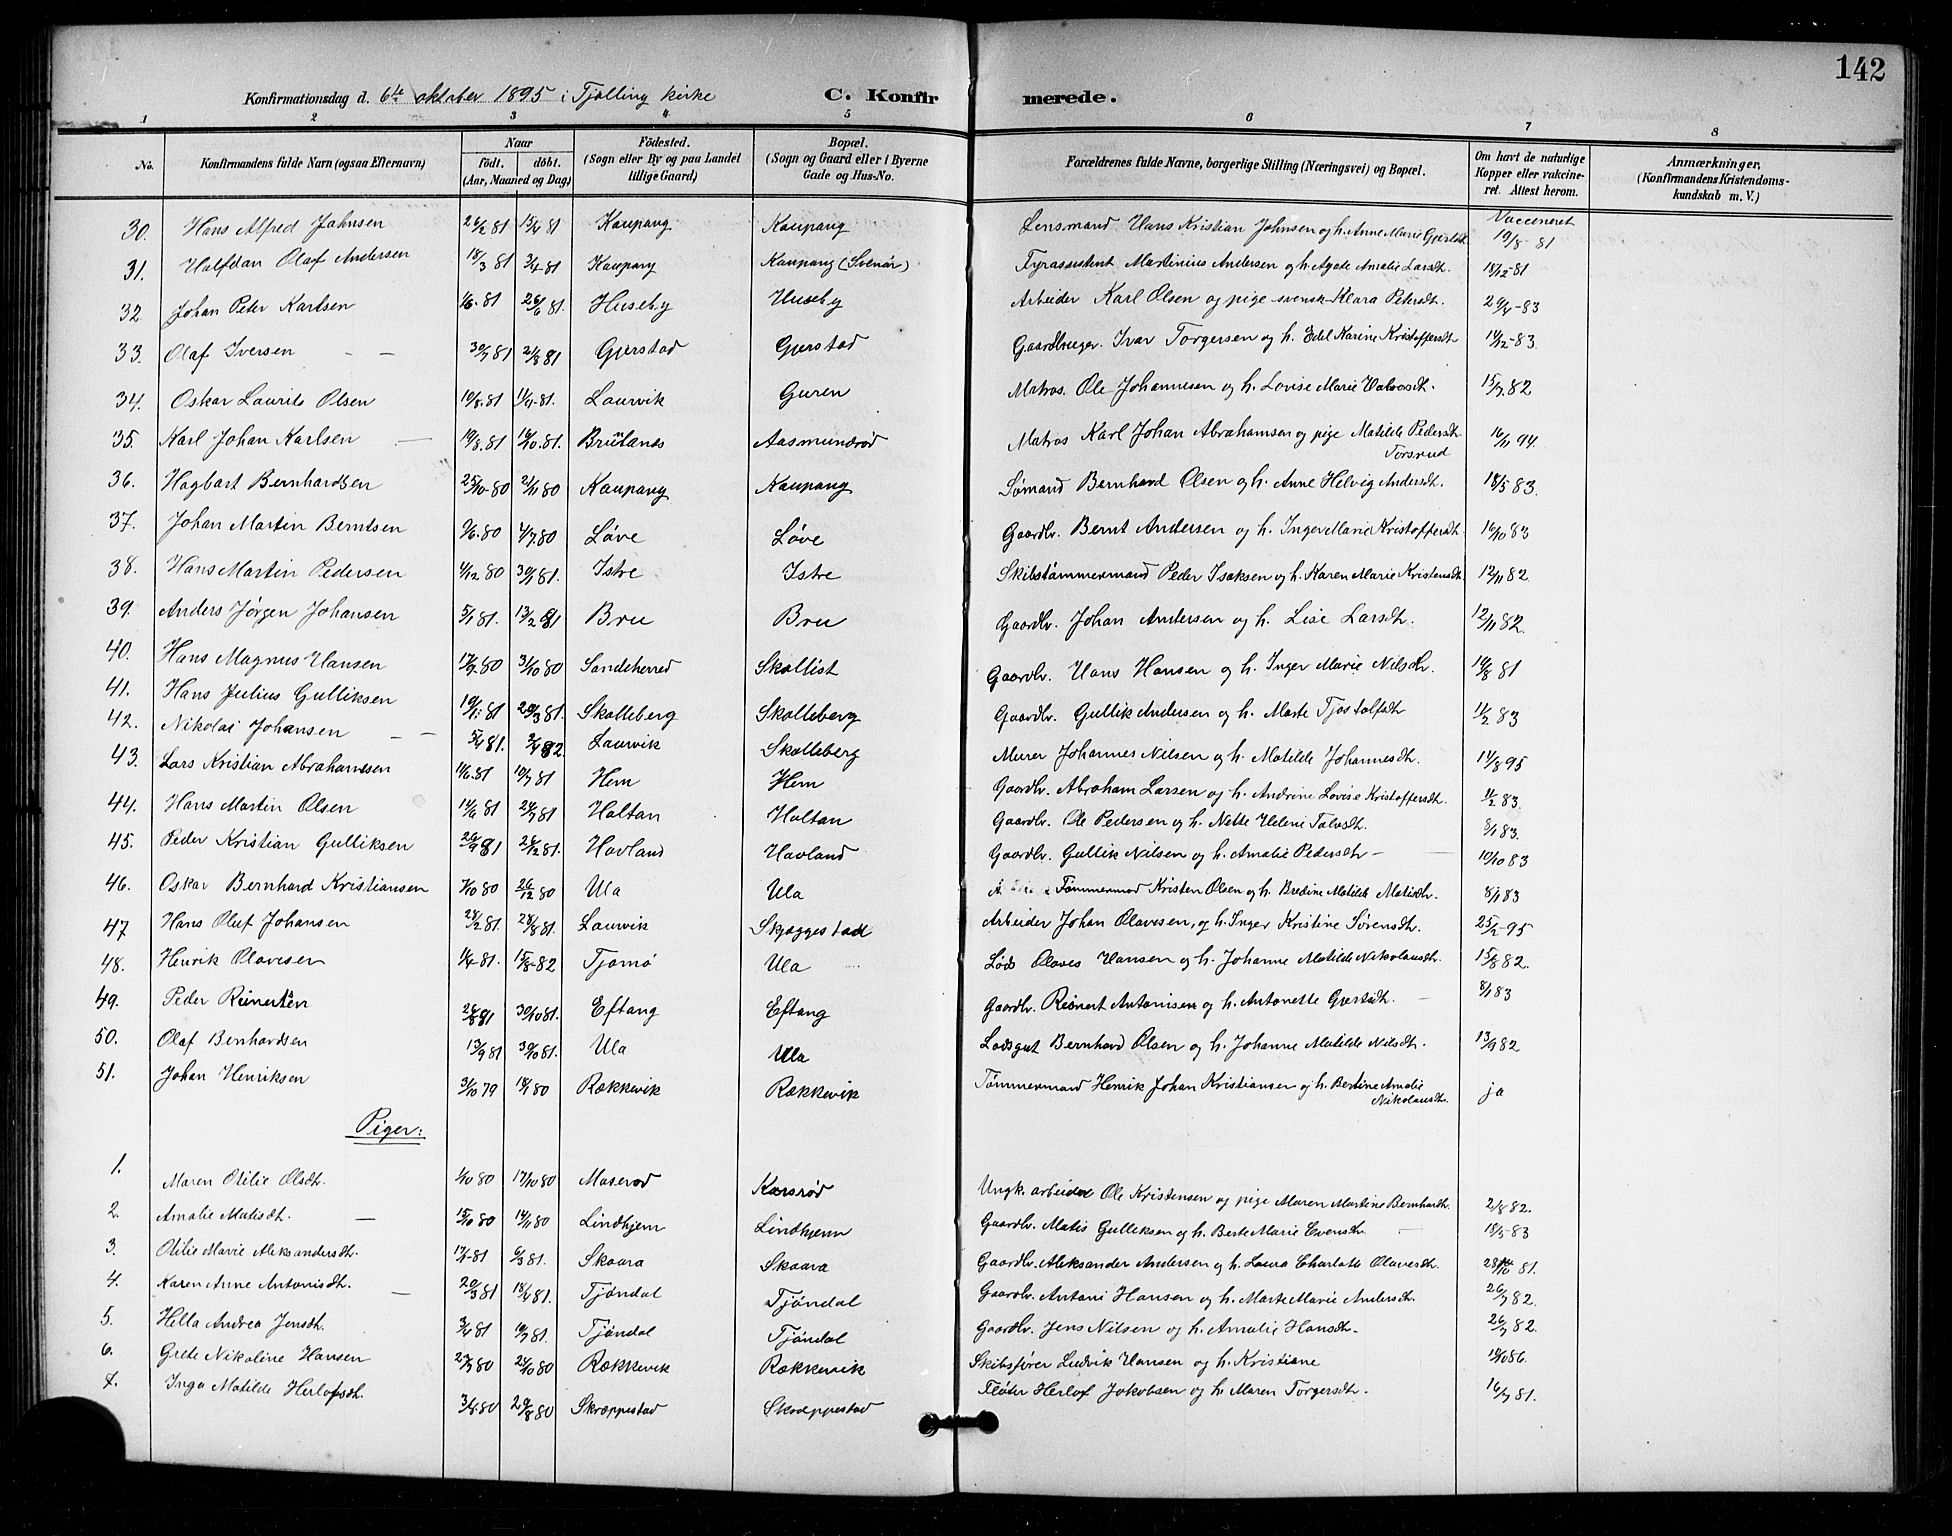 142
Konfirmationsdag d. 6te oktober 1895 i Tjølling kirke C. Konfirmerede.
1 2 3 4 5 6 7 8
No. Konfirmandens fulde Navn (ogsaa Efternavn) Naar født. døbt. (Aar, Maaned og Dag) Fødested. (Sogn eller By og paa Landet tillige Gaard) Bopæl. (Sogn og Gaard eller i Byerne Gade og Hus-No. Forældrenes fulde Navne, borgerlige Stilling (Næringsvei) og Bopæl. Om havt de naturlige Kopper eller vaccineret. Attest herom. Anmærkninger, (Konfirmandens Kristendomskundskab m. V.)
30. Hans Alfred Johnsen 26/2 81 15/4 81 Kaupang Kaupang Lensmand Hans Kristian Johnsen og h. Anne Marie Gjertsdt. Vaccineret 19/8-81
31. Halfdan Olaf Andersen 18/3 81 3/4-81 Kaupang Kaupang (Svenør) Fyrassistent Martinius Andersen og h. Agate Amalie Larsdt. 18/12-81
32 Johan Peter Karlsen 1/6-81 26/6 81. Huseby Huseby Arbeider Karl Olsen og pige svensk Klara Petersdt. 29/4-83
33. Olaf Iversen - - 30/7 81 21/8 81 Gjerstad Gjerstad Gaardbruger. Ivar Torgersen og h. Edel Karine Kristoffersdt 14/12-83.
34. Oskar Laurits Olsen 10/8.81 11/9-81. Laurvik Guren Matros. Ole Johannesen og h. Lovise Marie Halvorsdt. 15/7.82
35. Karl Johan Karlsen — 19/8.81 16/10.81. Brülanes Aasmundrød Matros Karl Johan Abrahamsen og pige Matilde Pedersdt. Torsrud 16/11 94.
36. Hagbart Bernhardsen 25/10-80 21/11 80 Kaupang Kaupang Sømand Bernhard Olsen og h. Anne Helvig Andersdt. 18/5 83.
37. Johan Martin Berntsen 9/6.80 4/7.80 Løve Løve Gaardbr. Bernt Andersen og h. Inger Marie Kristoffersdt 16/10 83
38. Hans Martin Pedersen 4/12 80 30/1 81. Istre Istre Skibstømmermand Peder Isaksen og h. Karen Marie Kristensdt. 12/11 82.
39. Anders Jørgen Johansen 5/1 81. 13/2 81 Bru Bru Gaardbr. Johan Andersen og h. Lise Larsdt. 12/11 82.
40. Hans Magnus Hansen 17/9.80 31/10 80 Sandeherred Skallist Gaardbr. Hans Hansen og h. Inger Marie Nilsdtr. 19/8 81
41. Hans Julius Gulliksen 19/1 81 20/3 81. Skalleberg Skalleberg Gaardbr. Gullik Andersen og h. Marte Tjostolfsdt 11/2 83
42. Nikolai Johansen - - 5/4 81. 2/4 82. Laurvik Skalleberg Murer Johannes Nilsen og h. Matilde Johannesdt. 14/8 95
43. Lars Kristian Abrahamsen 11/6.81 10/7 81 Hem Hem Gaardbr. Abraham Larsen og h. Andrine Lovise Kristoffersdt. 11/2 83.
44. Hans Martin Olsen 14/6 81 24/7 81 Holtan Holtan Gaardbr. Ole Pedersen og h. Nette Helene Talesdt. 8/1 83.
45. Peder Kristian Gulliksen 26/9 81 26/12 81. Havland Havland Gaardbr. Gullik Nilsen og h. Amalie Pedersdt — 10/10 83
46. Oskar Bernhard Kristiansen 7/10 80 26/12 80 Ula Ula Tømmermand Kristen Olsen og h. Bredine Matilde Matisdt. 8/1 83
47 Hans Oluf Johansen 28/2 81. 28/8 81. Laurvik Skjæggestad Arbeider Johan Olavesen, og h. Inger Kristine Sørensdt. 25/2-95
48. Henrik Olavesen 1/4-81. 15/8-82 Tjømø Ula Lods Olaves Hansen og h. Johanne Matilde Nikolausdt. 15/8 82.
49. Peder Reinertsen 26/8 81 30/10 81. Eftang Eftang Gaardbr. Reinert Antonisen og h. Antonette Gjertsdt. 8/1 83
50. Olaf Bernhardsen 13/9 81 30/10 81. Ula Ula Lodsgut Bernhard Olsen og h. Johanne Matilde Nilsdt. 13/9 82
51. Johan Henriksen 31/10 79 18/1 80 Rækkevik Rækkevik Tømmermand Henrik Johan Kristiansen og h. Bertine Amalie Nikolausdt. ja
Piger:
1. Maren Otilie Olsdt. 1/10 80 17/10 80 Maserød Karsrød Ungk. arbeider Ole Kristensen og pige Maren Martine Bernhardt. 2/8 82.
2. Amalie Matisdt. — 15/10 80 14/11 80 Lindhjem Lindhjem Gaardbr. Matis Gulliksen og h. Berte Marie Evensdt. — 18/5-83
3. Otilie Marie Aleksandersdt. 17/1-81 6/3 81. Skaara Skaara Gaardbr. Aleksander Andersen og h. Laura Charlotte Olavesdt. 28/10 81.
4. Karen Anne Antonisdt. — 20/3 81 18/4 81. Tjøndal Tjøndal Gaardbr. Antoni Hansen og h. Marte Marie Andersdt. 26/7 82.
5. Hella Andrea Jensdt. 3/4 81 10/7 81. Tjøndal Tjøndal Gaardbr. Jens Nilsen og h. Amalie Hansdt. 26/7 82.
6. Grete Nikoline Hansen 27/9 80 25/10 80 Rækkevik Rækkevik Skibsfører Ludvik Hansen og h. Kristiane 19/10 86.
7. Inga Matilde Herlofsdt. 3/4.80 29/8 80 Skræppestad Skræppestad Fløter Herlof Jakobsen og h. Maren Torgersdt. 16/7 81.